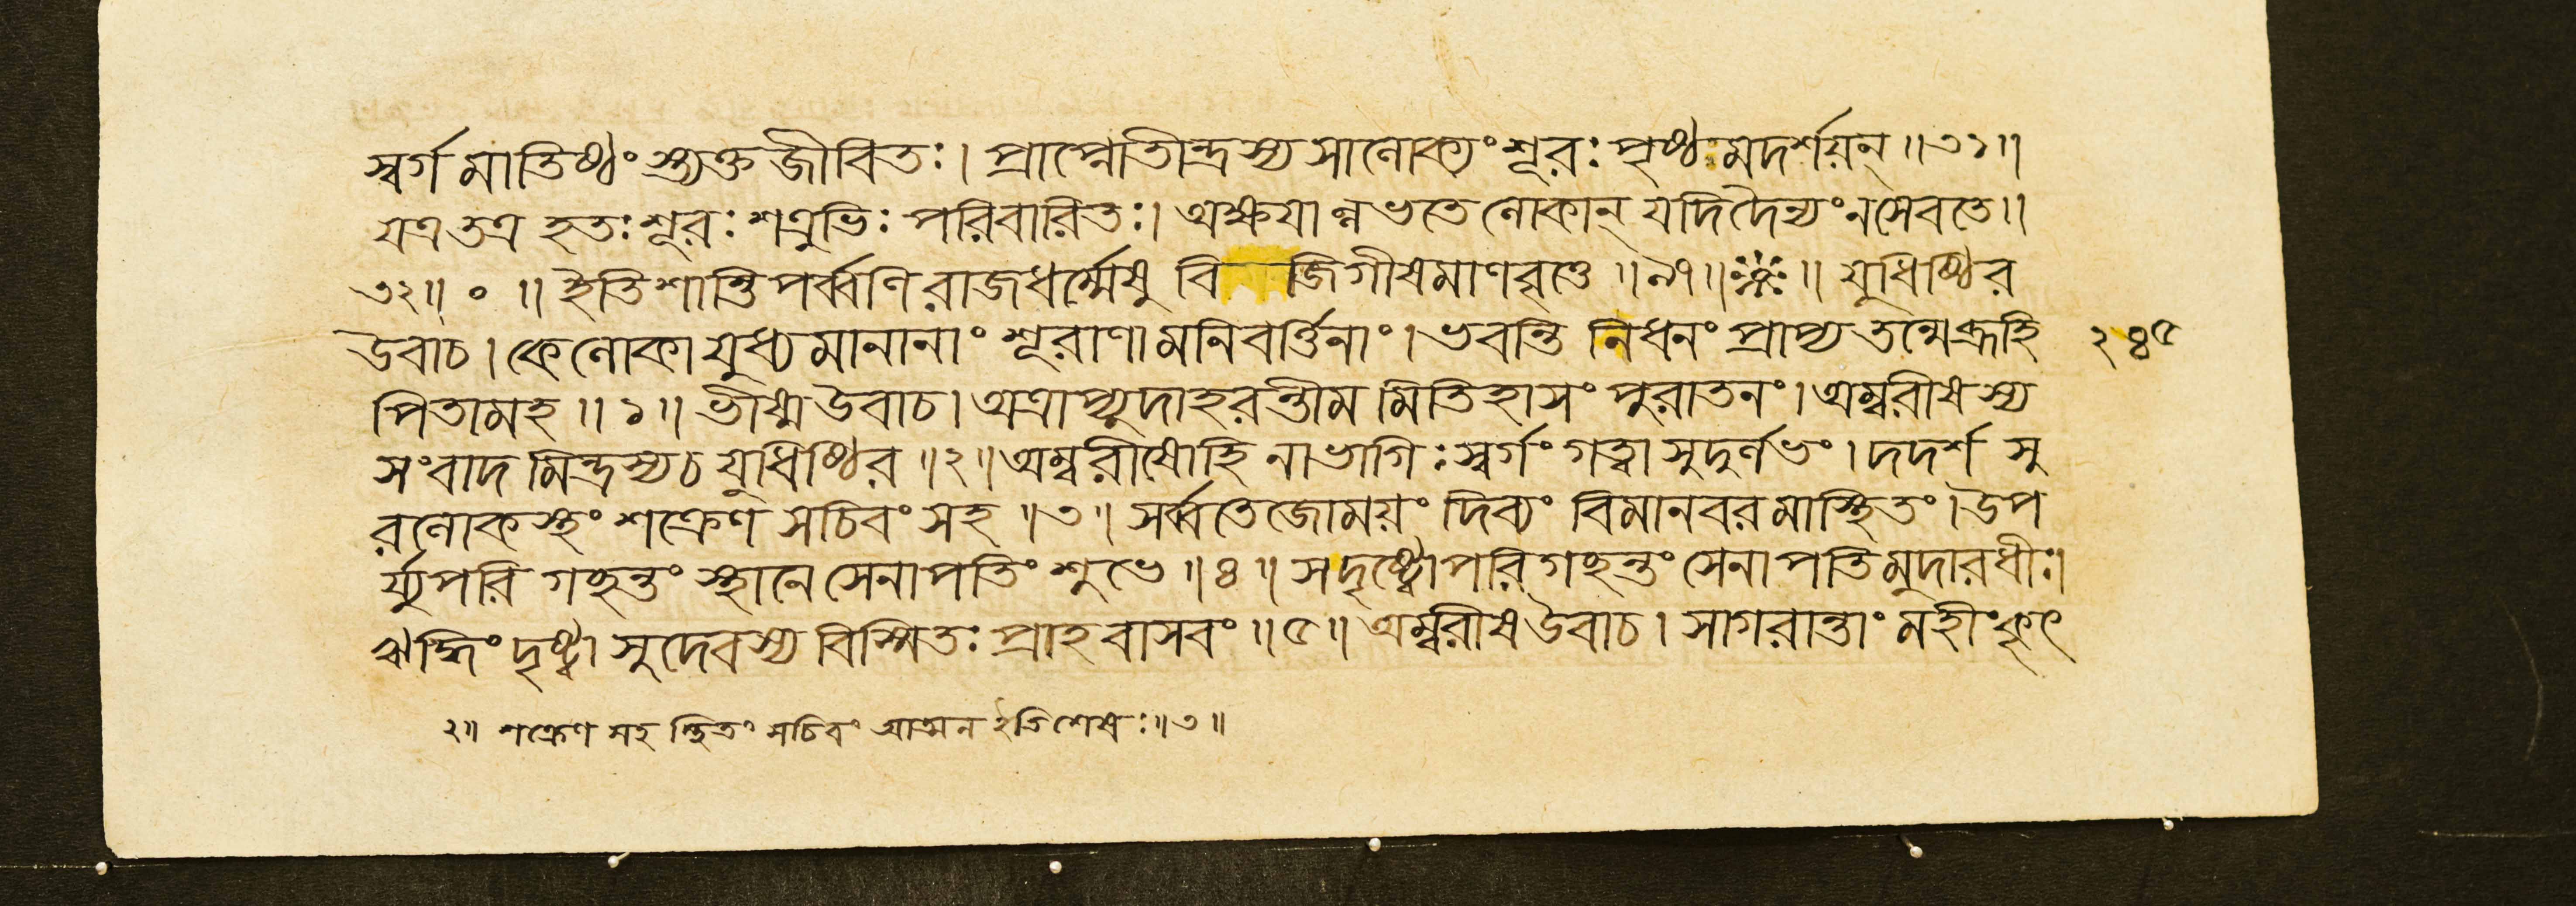 স্বর্গমাতিষ্ঠংস্ত্যক্তজীবিতঃ। প্রাপ্নোতীন্দ্রস্য সালোক্যং শূরঃ পৃষ্ঠমদর্শয়ন্॥৩১॥
যত্র তত্র হতঃ শূরঃ শত্রুভিঃ পরিবারিতঃ। অক্ষয়াল্লভতে লোকান্ যদি দৈন্যং ন সেবতে॥
৩২॥ ০ ॥ ইতি শান্তিপর্ব্বণি রাজধর্ম্মেষু বি জিগীষমাণবৃত্তে ॥৯৭॥ ॥ যুধিষ্ঠির
উবাচ। কে লোকা যুধ্যমানানাং শূরাণামনিবর্ত্তিনাং। ভবন্তি নিধনং প্রাপ্য তন্মে ব্রূহি ২৪৫
পিতামহ॥১॥ ভীষ্ম উবাচ। অত্রাপ্যুদাহরন্তীমমিতিহাসং পুরাতনং। অম্বরীষস্য
সংবাদমিন্দ্রস্য চ যুধিষ্ঠির॥২॥ অম্বরীষো হি নাভাগিঃ স্বর্গং গত্বা সুদুর্লভং। দদর্শ সু
রলোকস্থং শক্রেণ সচিবং সহ॥৩॥ সর্ব্বতেজোময়ং দিব্যং বিমানবরমাস্থিতং। উপ
র্য্যুপরি গচ্ছন্তং স্থানে সেনাপতিং শুভে॥৪॥ স দৃষ্ট্বোপরি গচ্ছন্তং সেনাপতিমুদারধীঃ।
ঋদ্ধিং দৃষ্ট্বা সুদেবস্য বিস্মিতঃ প্রাহ বাসবং॥৫॥ অম্বরীষ উবাচ। সাগরান্তাং মহীং কৃৎ
২॥ শক্রেণ সহ স্থিতং সচিবং আত্মন ইতি শেষঃ॥৩॥